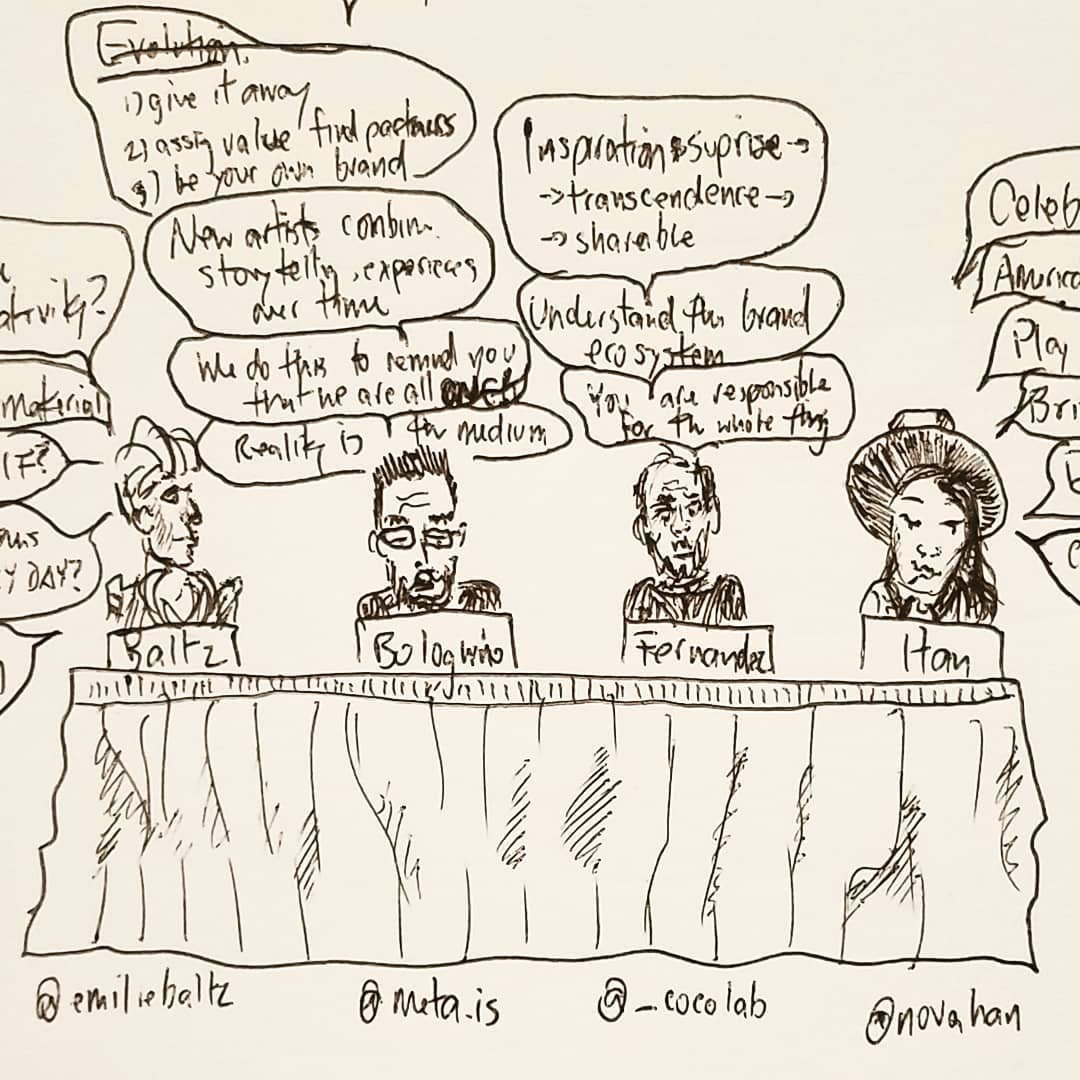 Evolution.
1) give it away
2) assig value find partners
3) be your own brand
New artists combin
storytellig, experieces
over time
We do this to remind you
that we are all
Reality is the medium
Inspiration & suprise →
→ transcendence →
→ sharable
Understand the brand
ecosystem
You are responsible
for the whole thing
ativity?
material
IF?
Y DAY?
Celeb
America
Play
Bri
Baltz
Bologwino
Fernandez
Han
@emiliebaltz
@meta.is
@_cocolab
@novahan